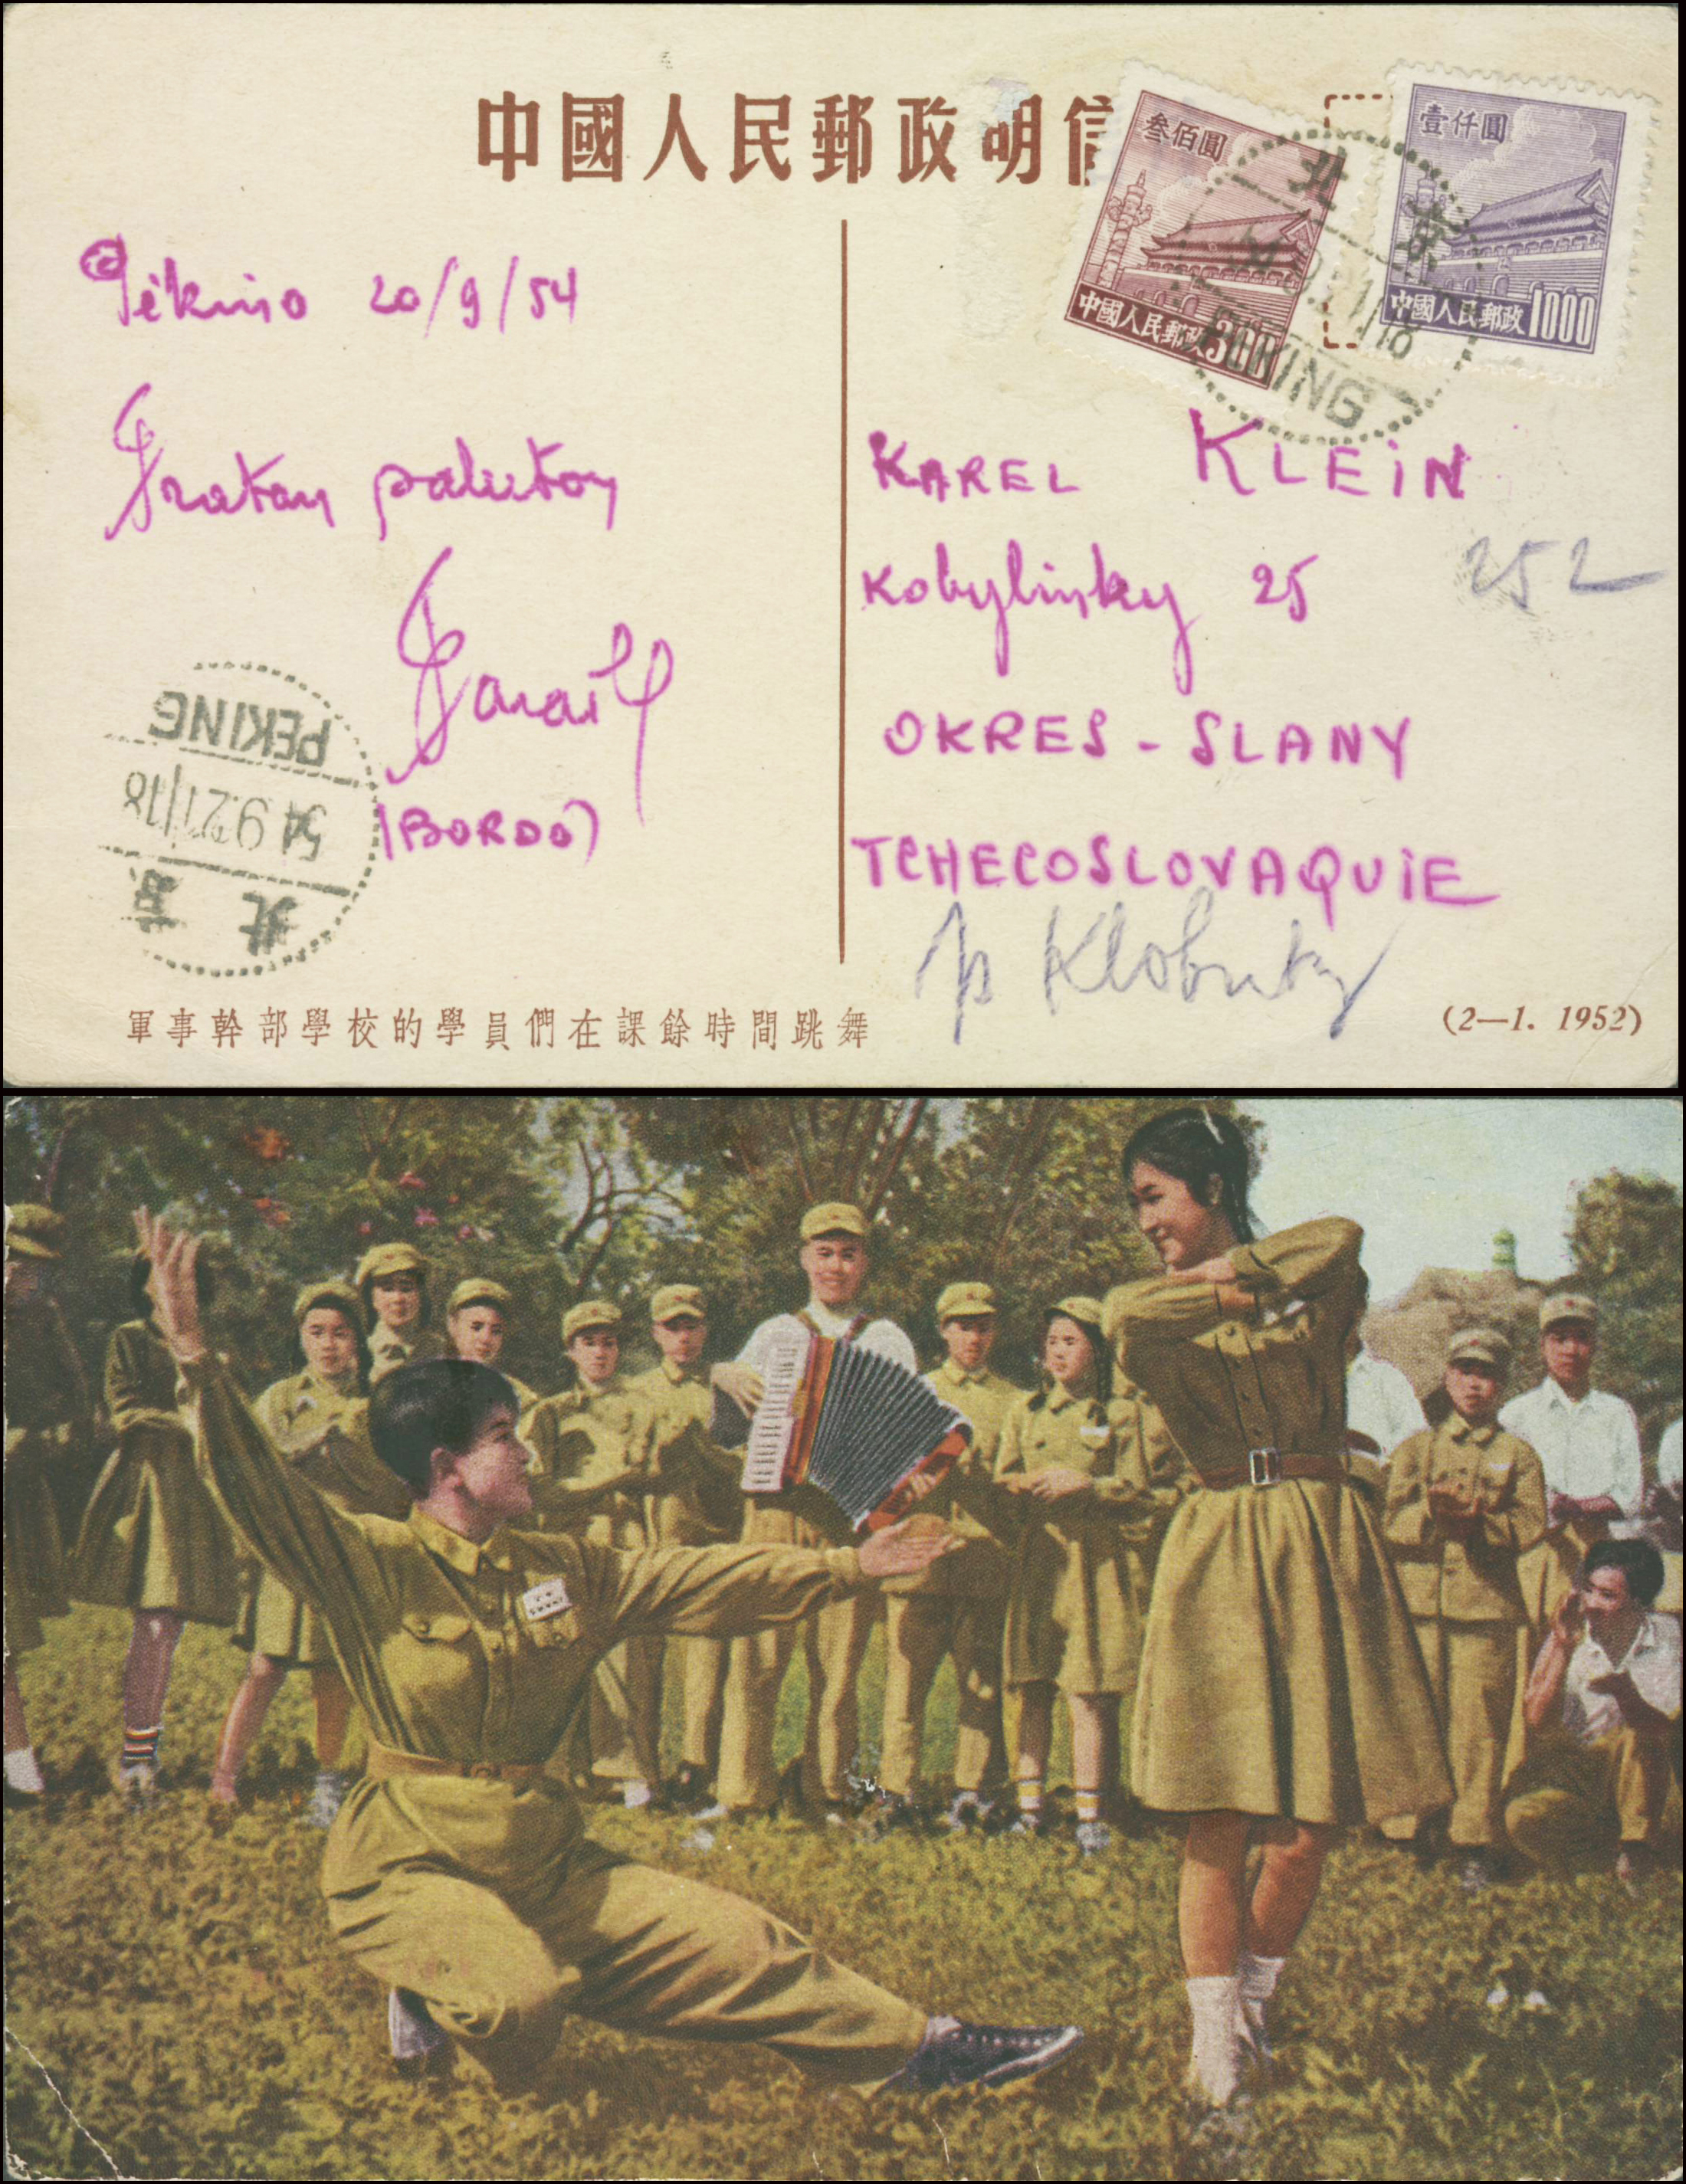 中國人民郵政明信
叁佰圓
中國人民郵政 300
壹仟圓
中國人民郵政 1000
北京
54.9.21/18
PEKING
Pékino 20/9/54
Fratan saluton
(BORDÓ)
PEKING
54.9.21/18
北京
KAREL KLEIN
Kobylinky 25
252
OKRES - SLANY
TCHECOSLOVAQUIE
p Klobuky
軍事幹部學校的學員們在課餘時間跳舞
(2—1. 1952)